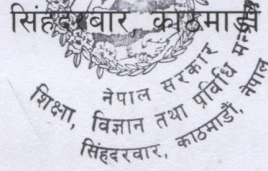 सिंहदरबार, काठमाडौं
नेपाल सरकार
शिक्षा, विज्ञान तथा प्रविधि मन्त्रालय
सिंहदरवार, काठमाडौं, नेपाल